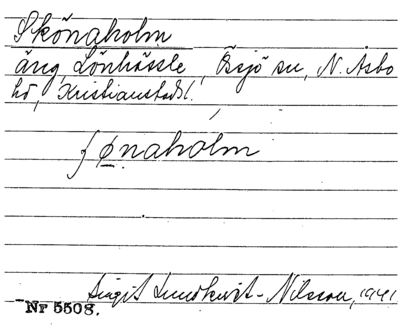 Skönaholm
äng, Lönhässle, Össjö sn, N. Åsbo
hd, Kristianstads l.
ʃønaholm
Birgit Lundkvist-Nilsson, 1941
Nr 5508.